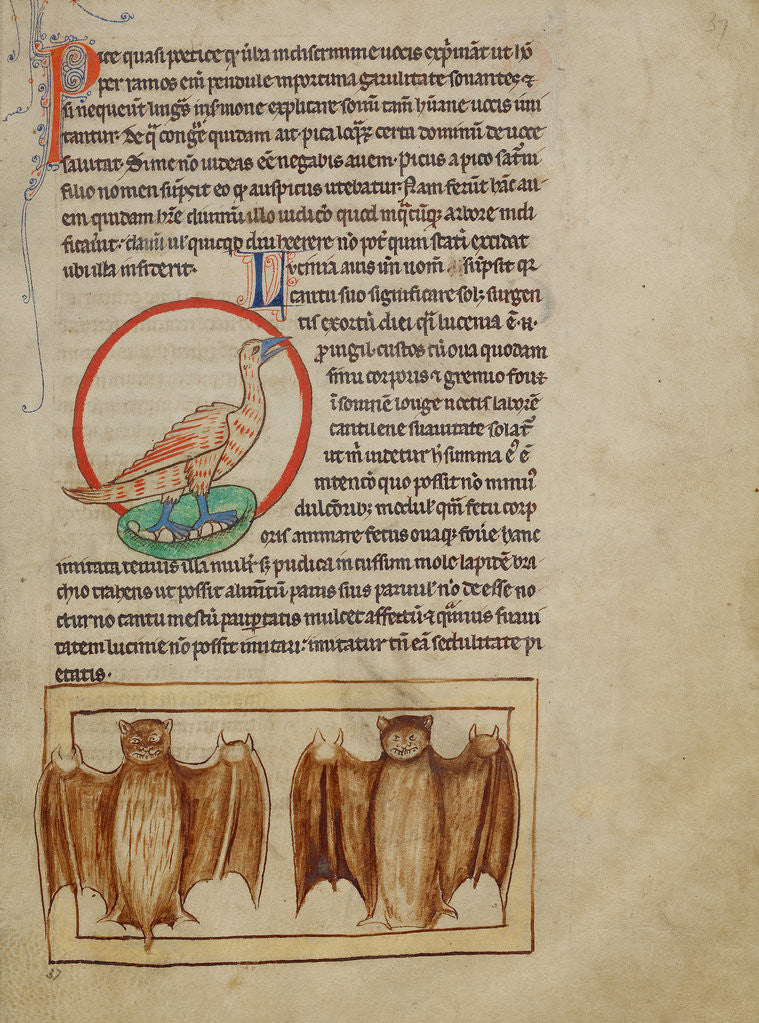 37
Pice quasi poetice qr uba in discrimine uocis exprimat ut ho
per ramos eni pendule inportuna garulitate sonantes &
si nequeunt linguas in sermone explicare sonu tam humane uocis imi
tantur. de qa congrue quidam ait. pica loquax certa dominum de uoce
salutat. Si me no uideas ee negabis auem. Picus a pico saturni
filio nomen supsit eo qr auspicus utebatur. Nam ferut hac au
em quidam hre diuinu illo iudico quod in quacuqz arbore nidi
ficauit. clauu ul quicqd diu heerere no pot quin stati excidat
ubi illa insiderit. Lucinia auis un nom supsit qr
cantu suo significare sol; surgen
tis exortu diei qsi lucenia e. H.
puigil. custos cu oua quodam
sinu corporis & gremio fouet
isomne longe noctis labore
cantilene suauitate solat
ut m uidetur h summa ei e
intencio quo possit no minus
dulcorib; modul qm fetu corp
oris animare fetus ouaqz foue hanc
imitata tenuis illa mulr. sz pudica in cussum mole lapite bra
chio trahens ut possit alimtu panis suis paruul no de esse no
cturno cantu mestu paupertatis mulcet affectu & quamuis suaui
tatem lucinie no possit imitari. imitatur tn ea sedulitate pi
etatis.
37